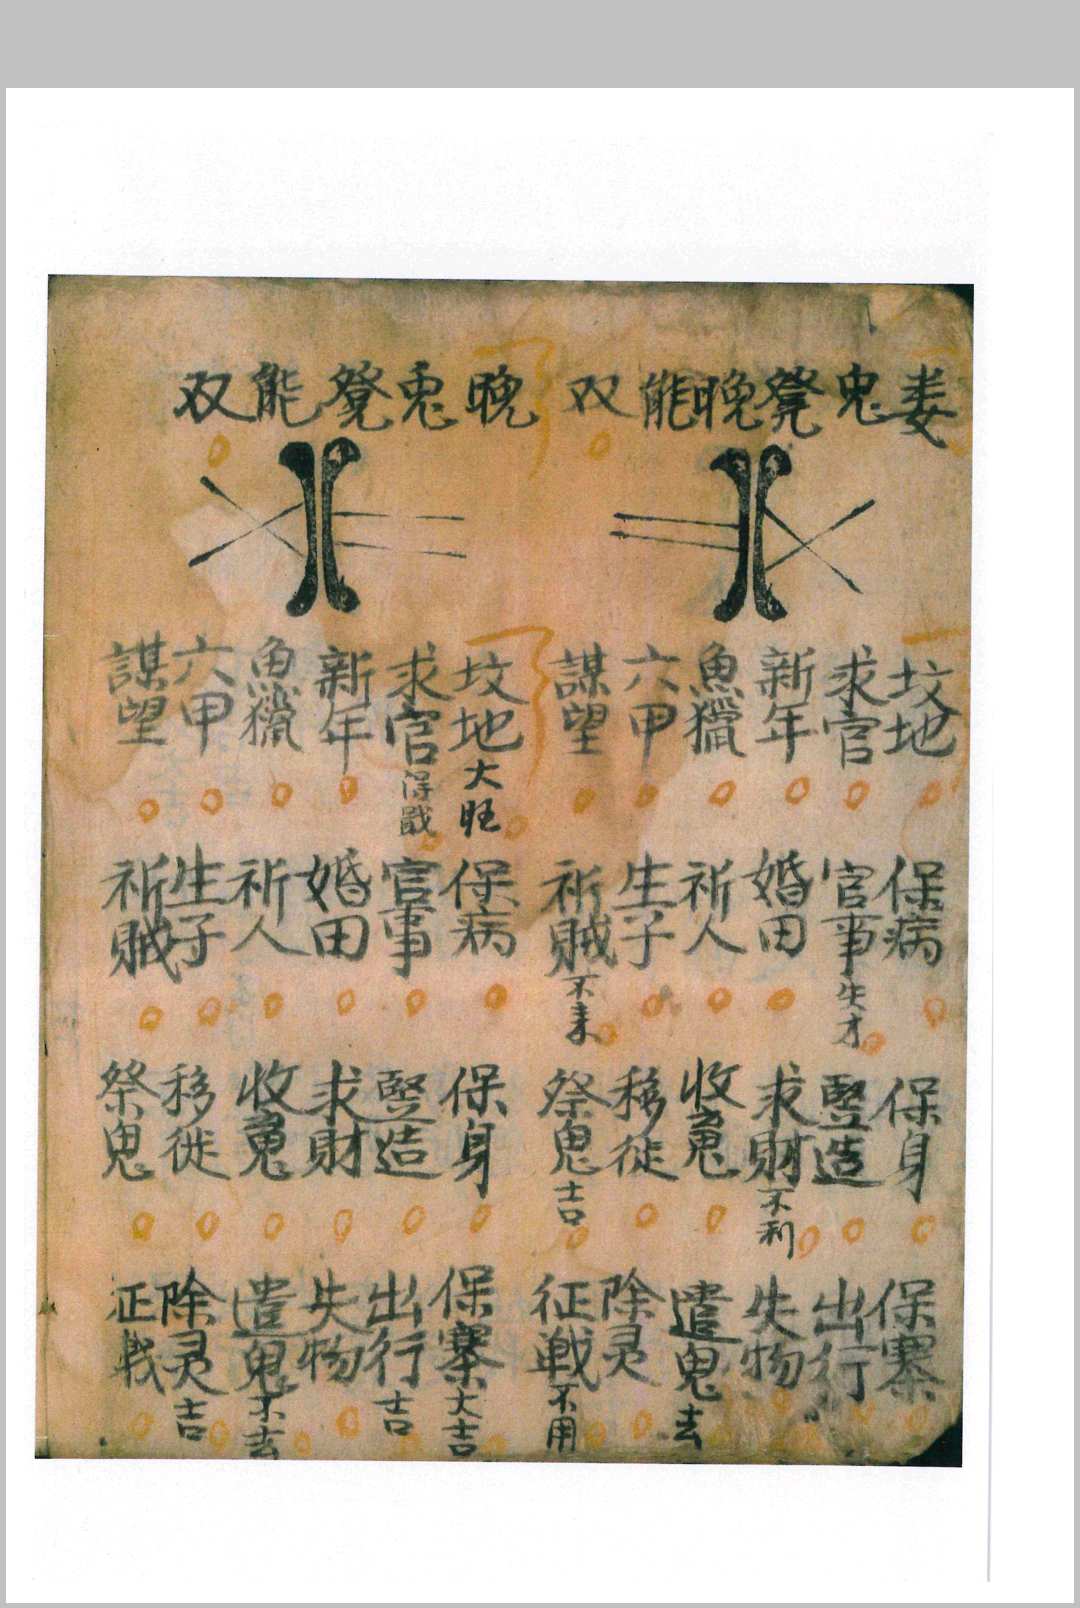 娄鬼凳晚能双
坟地 求官 新年 魚獵 六甲 謀望
保病 官事失才 婚田 祈人 生子 祈賊不来
保身 竪造 求財不利 收䰟 移徙 祭鬼吉
保寨 出行 失物 遣鬼去 除灵 征戦不用
晚兎凳能双
坟地大旺 求官得戢 新年 魚獵 六甲 謀望
保病 官事 婚田 祈人 生子 祈賊
保身 竪造 求財 收䰟 移徙 祭鬼
保寨大吉 出行吉 失物 遣鬼不去 除灵吉 征戦